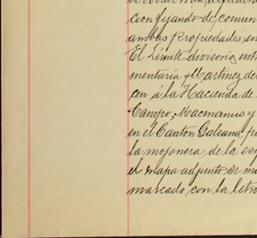 con fijando de comun
ambas propiedades, en
El Límite divisorio entr
mentaria y Martinez de
cen á la Hacienda de
Campo, Macmanus y
en el Canton Galeana, fu
la mojonera de la esq
el mapa adjunto de ma
marcado, con la letra